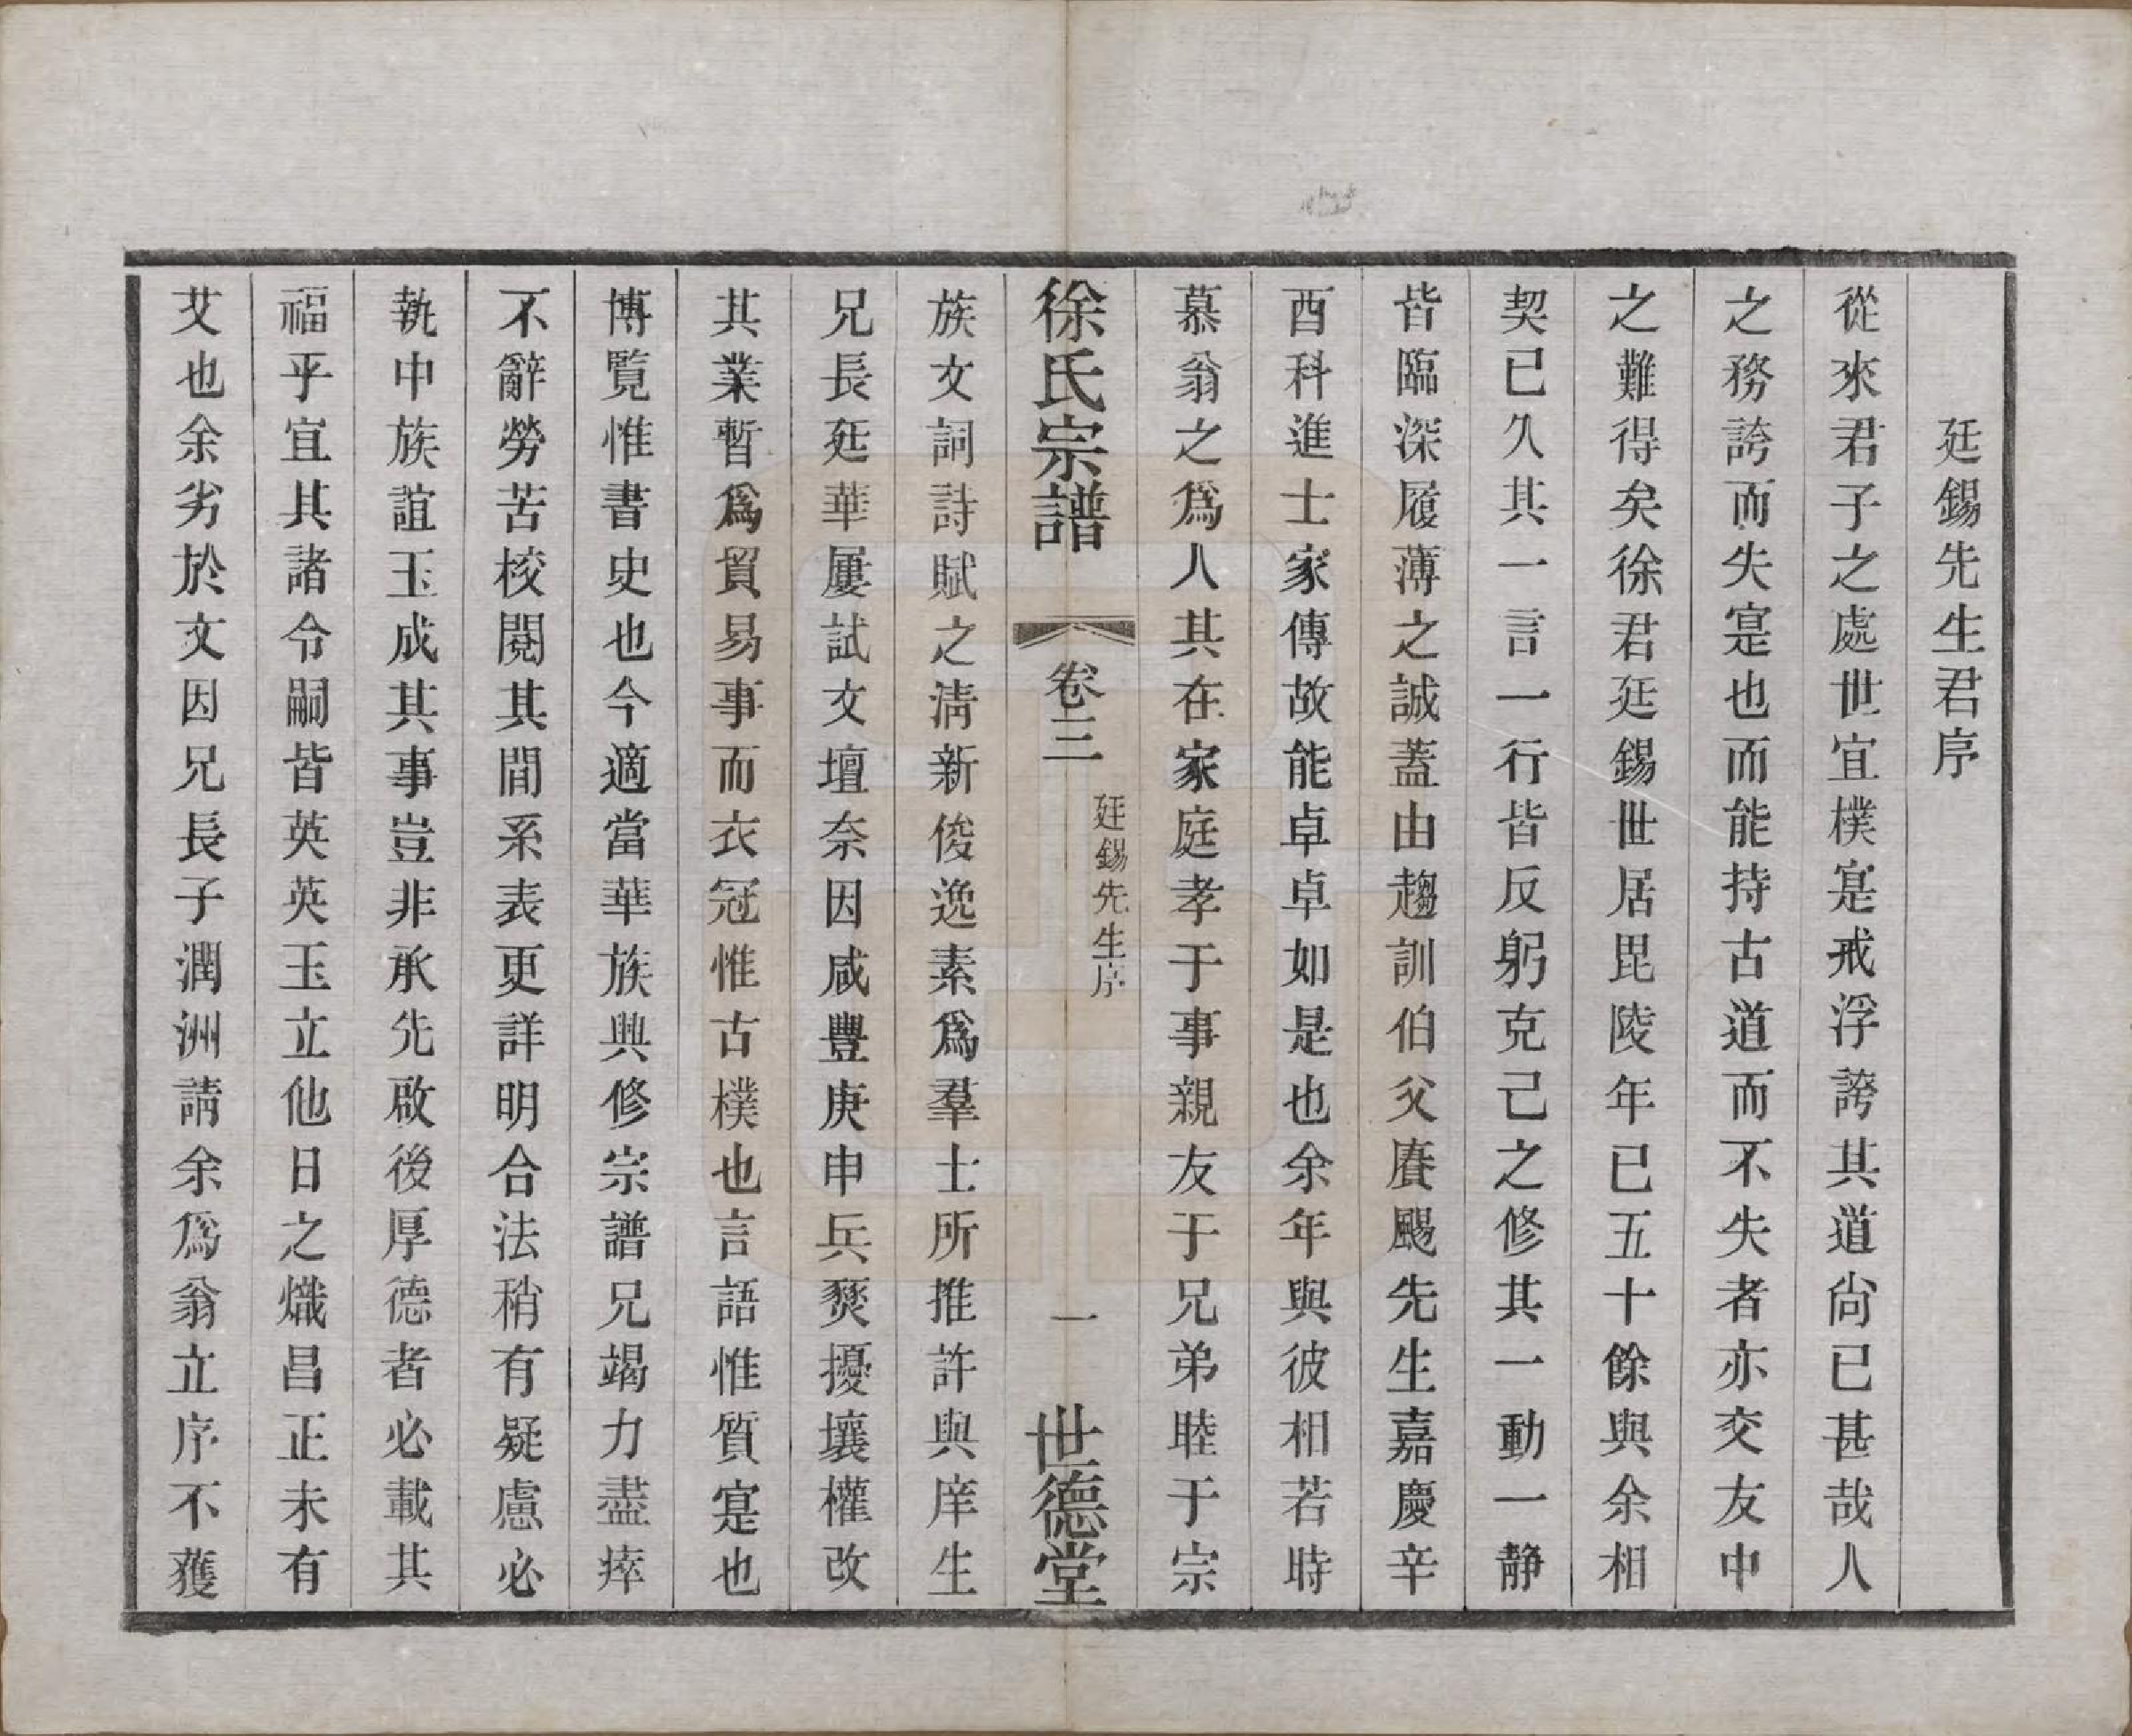 廷錫先生君序
從來君子之處世宜樸寔戒浮誇其道尙已甚哉人
之務誇而失寔也而能持古道而不失者亦交友中
之難得矣徐君廷錫世居毘陵年已五十餘與余相
契已久其一言一行皆反躬克己之修其一動一靜
皆臨深履薄之誠蓋由趨訓伯父賡颺先生嘉慶辛
酉科進士家傳故能卓卓如是也余年與彼相若時
慕翁之爲人其在家庭孝于事親友于兄弟睦于宗
徐氏宗譜 卷三 廷錫先生序 一 世德堂
族文詞詩賦之淸新俊逸素爲羣士所推許與庠生
兄長廷華屢試文壇奈因咸豐庚申兵燹擾壤權改
其業暫爲貿易事而衣冠惟古樸也言語惟質寔也
博覽惟書史也今適當華族興修宗譜兄竭力盡瘁
不辭勞苦校閱其間系表更詳明合法稍有疑慮必
執中族誼玉成其事豈非承先啟後厚德者必載其
福乎宜其諸令嗣皆英英玉立他日之熾昌正未有
艾也余劣於文因兄長子潤洲請余爲翁立序不獲